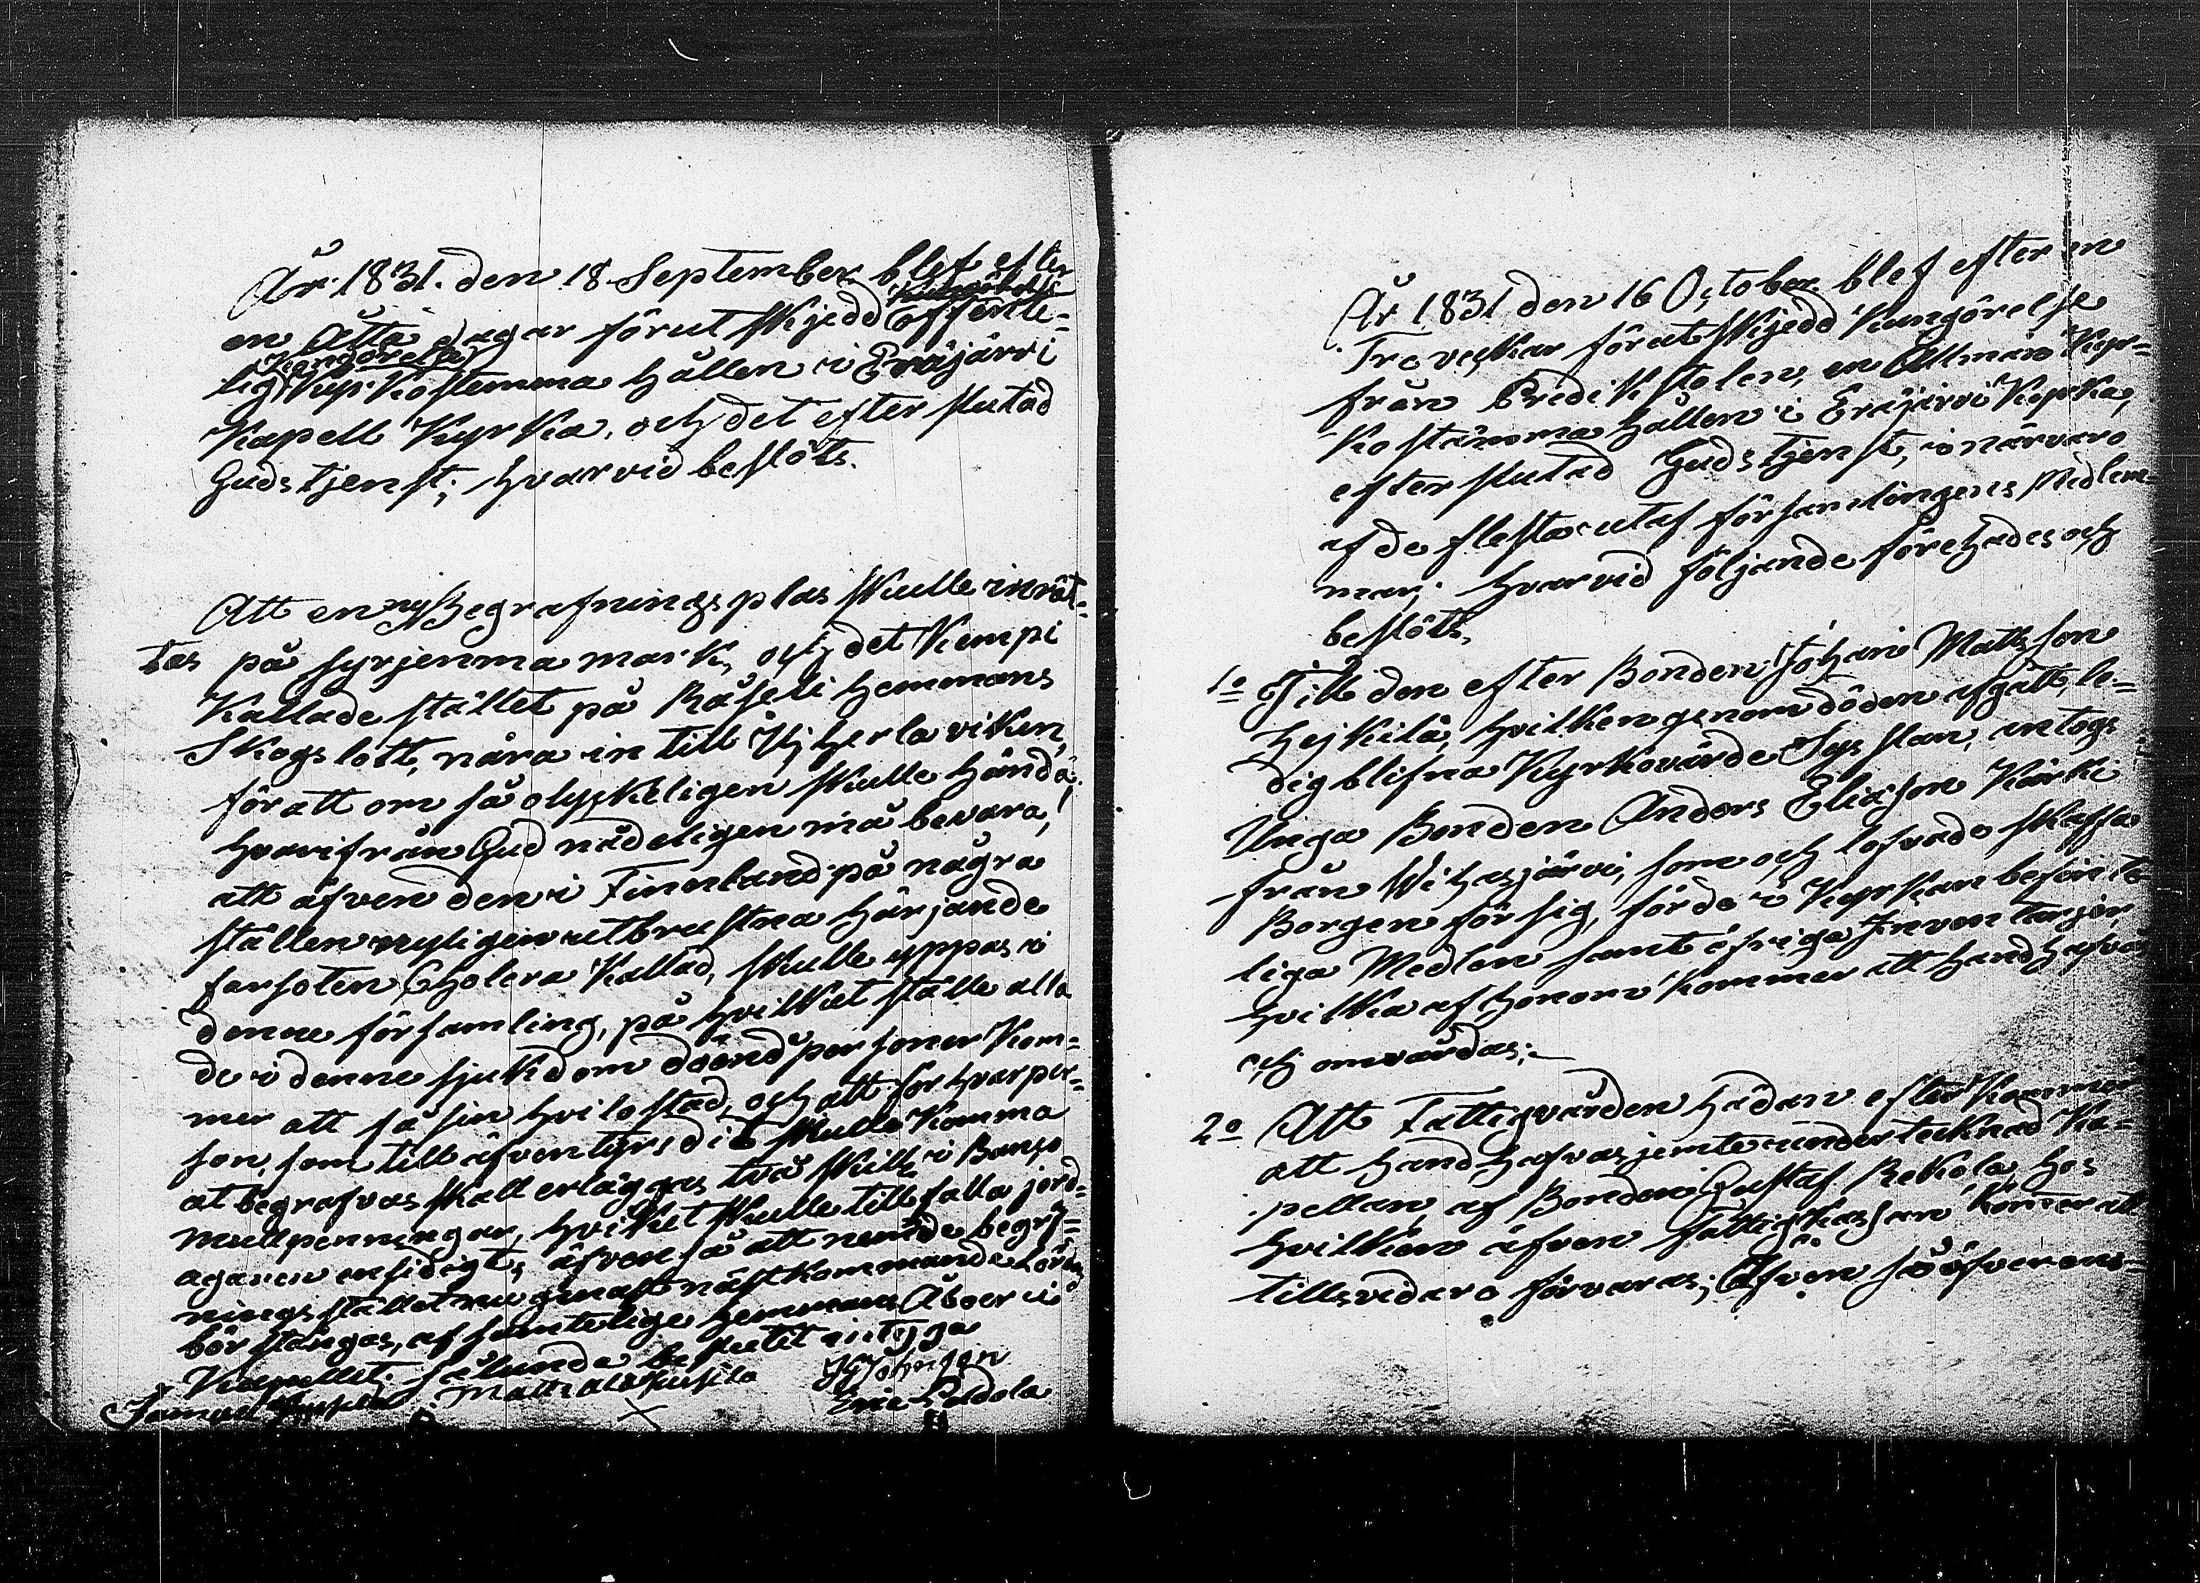 År 1831. den 18 September blef efter
en åtta dagar förut skjedd offente-
Kungörelse
lig Kyrkostemma hållen i Eräjärvi
Kapell Kyrka, och det efter slutad
Gudstjenst; hvarvid beslöts.
Att en ny Begrafningsplas skulle inrät-
tas på Syrjenma mark, och det Kempi
Kallade stället på Räseli hemmans
Skogslott, nära in till Ujherla viken,
för att om så olyckeligen skulle hända,
hvarifrån Gud nådeligen må bevara!
att äfven den i Finnland på några
ställen nyligen utbrustna härjande
farsoten Cholera Kallad, skulle yppas i
denne församling, på hvilket ställe alla
de i denne sjukdom döend personer Kom-
mer att få sin hvilostad, och att för hvar per-
son, som till äfventyrs dit skulle Komma
at begrafvas skall erläggas två skill. i Banco
mullpenningar, hvilket skulle tillfalla jord-
agaren ensidigt, äfven så att nemde begraf-
nings stället nu genast nästkommande
bör stängas, af samtelige hemmans Åboer i
Kapellet. sålunda beslutit intyga
Matts Alakuusila
Samuel
Eric Puldola
År 1831 den 16 October blef efter en
Tre veckar förut skjedd Kungörelse
från Predikstolen, en Allmän Kyr-
kostämma hållen i Eräjärvi Kyrka,
efter slutad Gudstjenst, i närvaro
af de flesta utaf församlingens Medlem-
mar; hvarvid följande förehades och
beslöts,
1o Till den efter Bonden Johan Mattsson
Hejkilä, hvilken genom döden afgått, le-
dig blifna Kyrkovärde Sysslan, antogs
Unga Bonden Anders Eliasson Kärki
från Wihasjärvi, som och lofvade skaffa
Borgen för sig, för de i Kyrkan befinte-
liga Medlen samt öfriga Inventarjer
hvilka af honom Kommer att handhafvas
och omvårdas;
2o Att Fattigvården hädan efter Kommer
att handhafvas jemte undertecknad Ka-
pellan, af Bonden Gustaf Rekola hos
hvilken äfven fattigkassan Kommer att
tillsvidare förvaras; Äfven så öfverens-